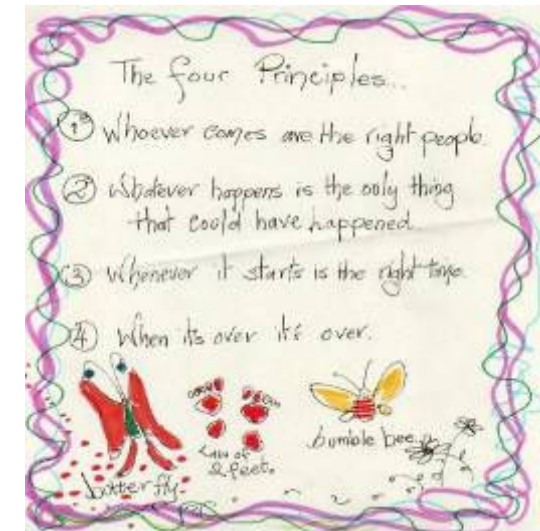 The four Principles...
① Whoever comes are the right people.
② Whatever happens is the only thing
that could have happened.
③ Whenever it starts is the right time.
④ When its over it's over.
Law of
2 feet.
bumble bee
butterfly